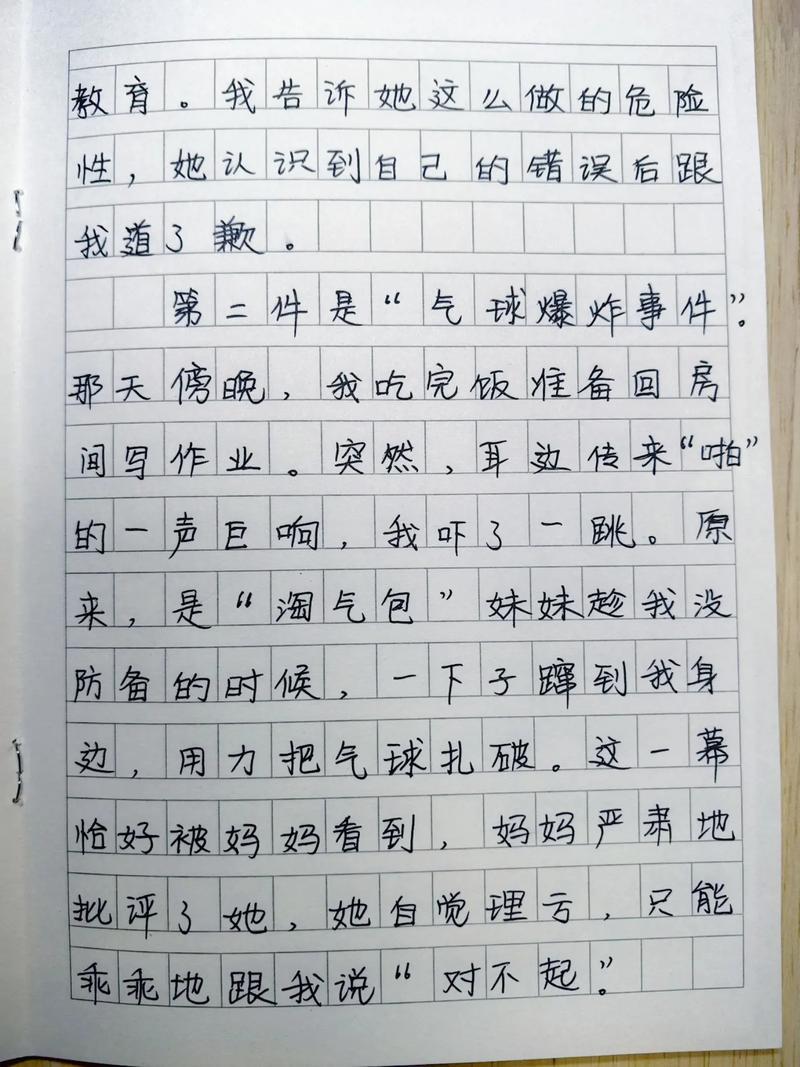 教育。我告诉她这么做的危险
性，她认识到自己的错误后跟
我道了歉。
第二件是“气球爆炸事件”。
那天傍晚，我吃完饭准备回房
间写作业。突然，耳边传来“啪”
的一声巨响，我吓了一跳。原
来，是“淘气包”妹妹趁我没
防备的时候，一下子蹿到我身
边，用力把气球扎破。这一幕
恰好被妈妈看到，妈妈严肃地
批评了她，她自觉理亏，只能
乖乖地跟我说“对不起”。